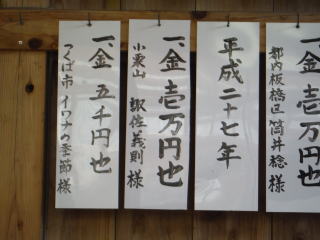 一金壱万円也
都内板橋区 筒井稔様
平成二十七年
一金壱万円也
小栗山 諏佐義則様
一金 五千円也
つくば市 イワナの季節様